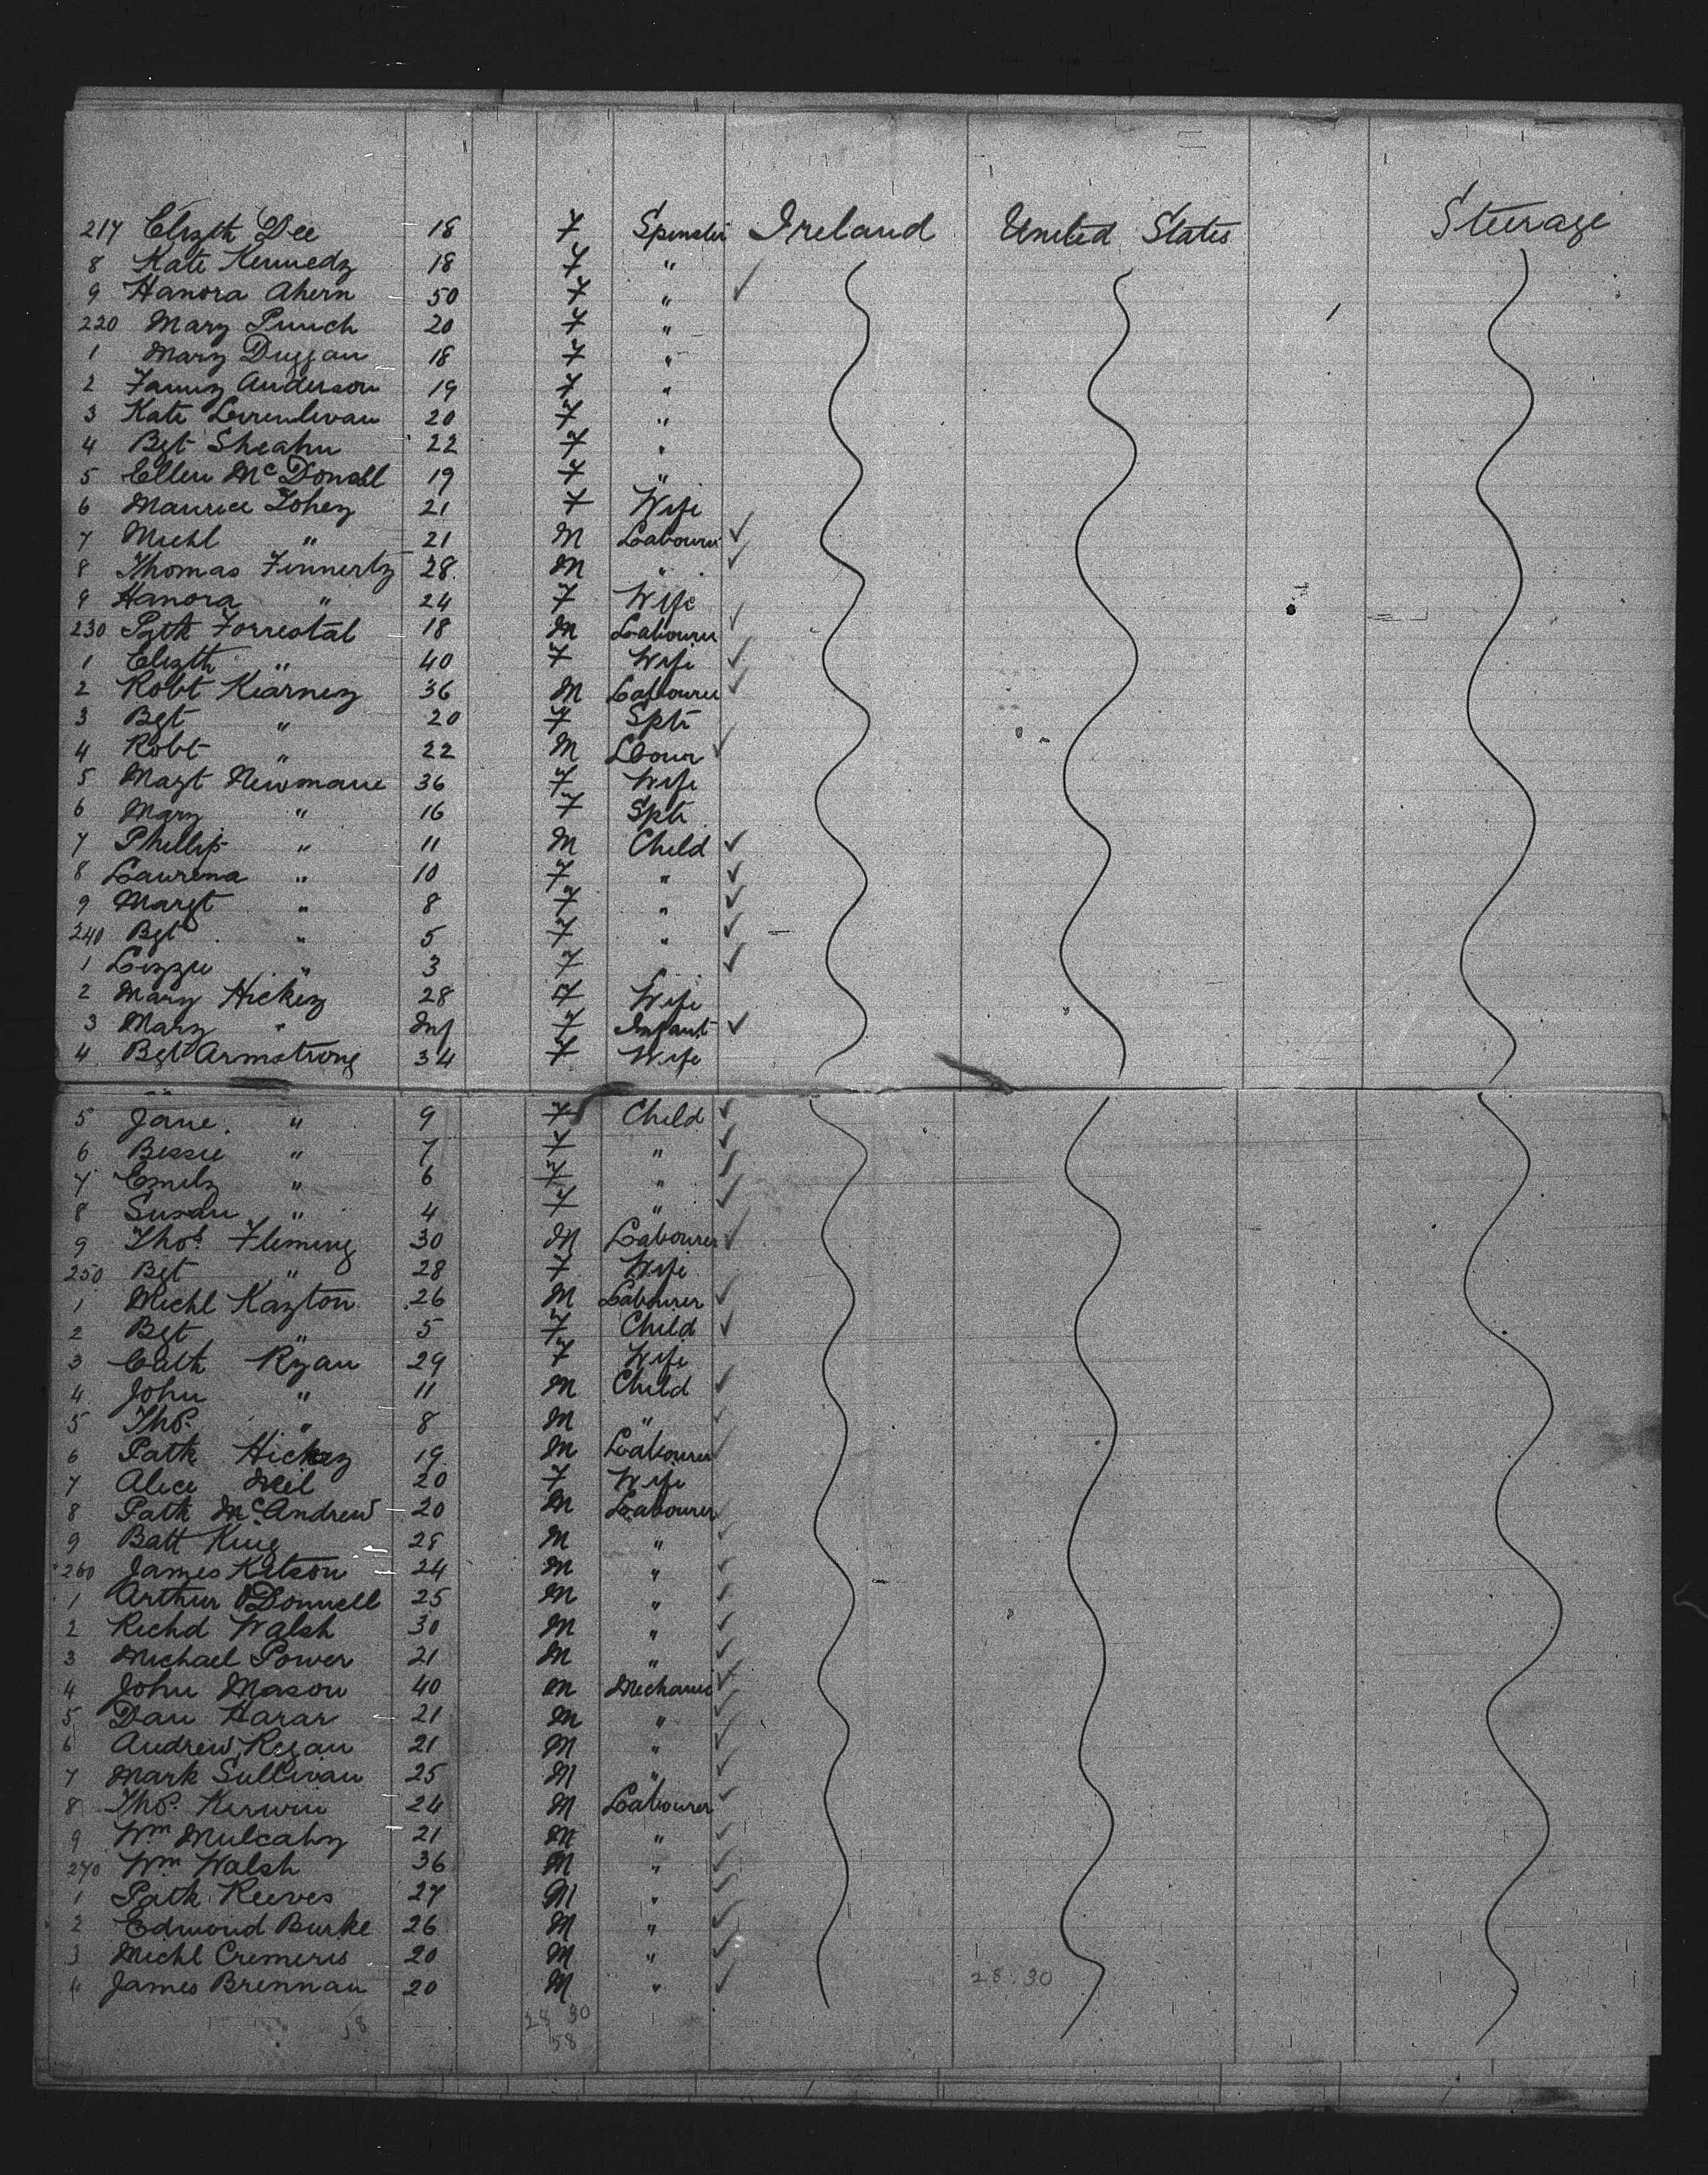 217 Elizth Dee 18 F Spinster Ireland United States Steerage
8 Kate Kennedy 18 F "
9 Hanora Ahern 50 F "
220 Mary Punch 20 F "
1 Mary Duggan 18 F "
2 Fanny Anderson 19 F "
3 Kate 20 F "
4 Bgt Sheahn 22 F "
5 Ellen McDonall 19 F "
6 Maurice 21 F Wife
7 Michl " 21 M Labourer
8 Thomas Finnerty 28 M "
9 Hanora " 24 F Wife
230 Patk Forrestal 18 M Labourer
1 Elizth " 40 F Wife
2 Robt Kearney 36 M Labourer
3 Bgt " 20 F Sptr
4 Robt " 22 M Lbour
5 Magt Newmane 36 F Wife
6 Mary " 16 F Sptr
7 Phillip " 11 M Child
8 Laurena " 10 F "
9 Margt " 8 F "
240 Bgt " 5 F "
1 Lizzie " 3 F "
2 Mary Hickey 28 F Wife
3 Mary " Inf F Infant
4 Bgt Armstrong 34 F Wife
5 Jane " 9 F Child
6 Bessie " 7 F "
7 Emily " 6 F "
8 Susan " 4 F "
9 Thos Fleming 30 M Labourer
250 Bgt " 28 F Wife
1 Michl Kayton 26 M Labourer
2 Bgt " 5 F Child
3 Cath Ryan 29 F Wife
4 John " 11 M Child
5 Thos " 8 M "
6 Patk Hickey 19 M Labourer
7 Alice Neil 20 F Wife
8 Patk McAndrew 20 M Labourer
9 Batt King 28 M "
260 James Kitson 24 M "
1 Arthur O'Donnell 25 M "
2 Richd Walsh 30 M "
3 Michael Power 21 M "
4 John Mason 40 M Mechanic
5 Dan Harar 21 M "
6 Andrew Regan 21 M "
7 Mark Sullivan 25 M "
8 Thos Kerwin 24 M Labourer
9 Wm Mulcahy 21 M "
270 Wm Walsh 36 M "
1 Patk Reeves 27 M "
2 Edmond Burke 26 M "
3 Michl Cremeris 20 M "
4 James Brennan 20 M "
28.30
58 28 30
58